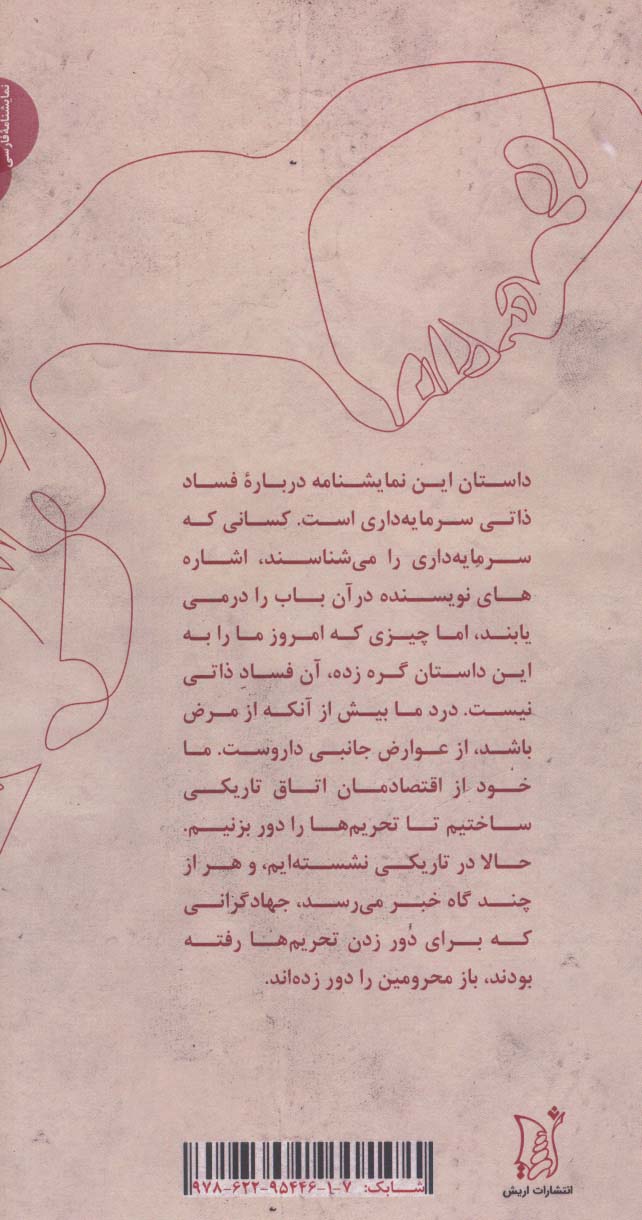 نمایشنامهٔ فارسی
داستان این نمایشنامه دربارهٔ فساد
ذاتی سرمایه‌داری است. کسانی که
سرمایه‌داری را می‌شناسند، اشاره
های نویسنده درآن باب را درمی
یابند، اما چیزی که امروز ما را به
این داستان گره زده، آن فسادِ ذاتی
نیست. درد ما بیش از آنکه از مرض
باشد، از عوارض جانبی داروست. ما
خود از اقتصادمان اتاق تاریکی
ساختیم تا تحریم‌ها را دور بزنیم.
حالا در تاریکی نشسته‌ایم، و هر از
چند گاه خبر می‌رسد، جهادگرانی
که برای دُور زدن تحریم‌ها رفته
بودند، باز محرومین را دور زده‌اند.
انتشارات اریش
شابک: ۷-۱-۹۵۴۴۶-۶۲۲-۹۷۸